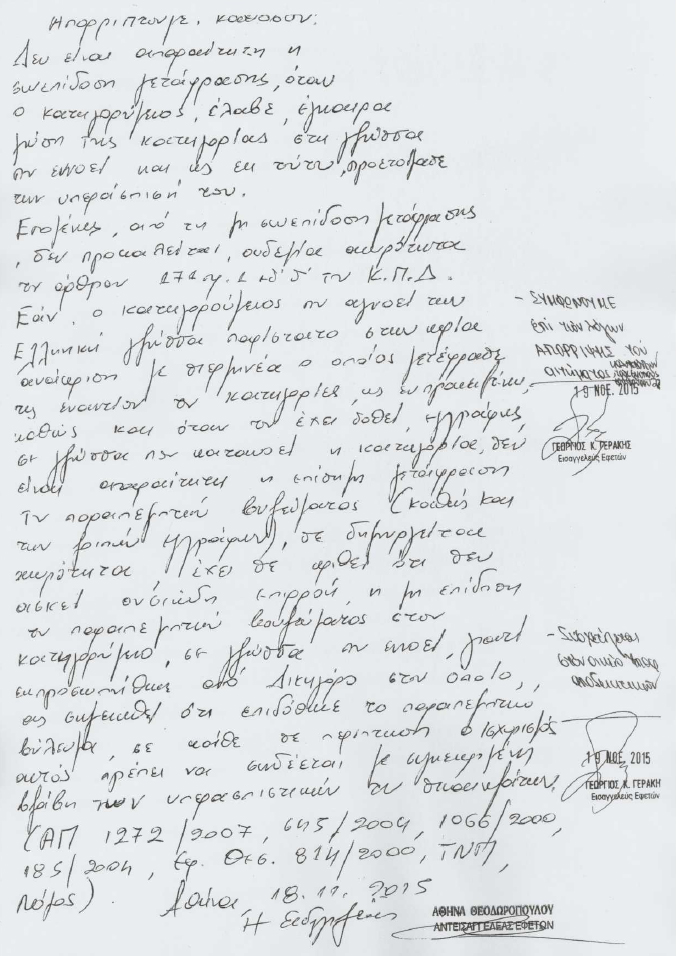 Απορρίπτουμε, καθόσον:
Δεν είναι απαραίτητη η
συνεπίδοση μετάφρασης, όταν
ο κατηγορούμενος, έλαβε, έγκαιρα
γνώση της κατηγορίας στη γλώσσα
που εννοεί και ως εκ τούτου, προετοίμασε
την υπεράσπισή του.
Επομένως, από τη μη συνεπίδοση μετάφρασης
, δεν προκαλείται, ουδεμία ακυρότητα
του άρθρου 171 παρ. 1 εδ' δ' του Κ.Π.Δ.
Εάν, ο κατηγορούμενος που αγνοεί την
Ελληνική γλώσσα παρίστατο στην κυρία
ανάκριση με διερμηνέα ο οποίος μετέφρασε
τις εναντίον του κατηγορίες, ως εν προκειμένω,
καθώς και όταν του έχει δοθεί, εγγράφως,
σε γλώσσα που κατανοεί η κατηγορία, δεν
είναι απαραίτητη η επίσημη μετάφραση
του παραπεμπτικού βουλεύματος (καθώς και
των λοιπών εγγράφων), δε δημιουργείται
ακυρότητα, έχει δε κριθεί ότι δεν
ασκεί ουσιώδη επιρροή, η μη επίδοση
του παραπεμπτικού βουλεύματος στον
κατηγορούμενο, σε γλώσσα που εννοεί, γιατί
εκπροσωπήθηκε από Δικηγόρο στον οποίο,
ας σημειωθεί ότι επιδόθηκε το παραπεμπτικό
βούλευμα, σε κάθε δε περίπτωση ο ισχυρισμός
αυτός πρέπει να συνδέεται με συγκεκριμένη
βλάβη των υπερασπιστικών του δικαιωμάτων.
(ΑΠ 1272/2007, 645/2004, 1066/2000,
185/2004, Εφ. Θεσ. 814/2000, ΤΝΠ,
Νόμος). Αθήνα, 18.11.2015
Η Εισαγγελέας
ΑΘΗΝΑ ΘΕΟΔΩΡΟΠΟΥΛΟΥ
ΑΝΤΕΙΣΑΓΓΕΛΕΑΣ ΕΦΕΤΩΝ
- ΣΥΜΦΩΝΟΥΜΕ
επί των λόγων
ΑΠΟΡΡΙΨΗΣ του
αιτήματος
19 ΝΟΕ. 2015
ΓΕΩΡΓΙΟΣ Κ. ΓΕΡΑΚΗΣ
Εισαγγελέυς Εφετών
αποδεικτικών
19 ΝΟΕ. 2015
ΓΕΩΡΓΙΟΣ Κ. ΓΕΡΑΚΗ
Εισαγγελέυς Εφετών